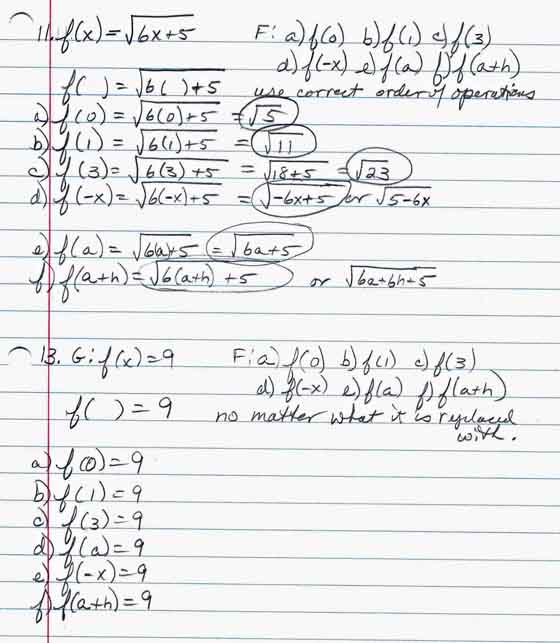 11. f(x) = √6x+5 F: a) f(0) b) f(1) c) f(3)
d) f(-x) e) f(a) f) f(a+h)
f( ) = √6( )+5 use correct order of operations
a) f(0) = √6(0)+5 = √5
b) f(1) = √6(1)+5 = √11
c) f(3) = √6(3)+5 = √18+5 = √23
d) f(-x) = √6(-x)+5 = √-6x+5 or √5-6x
e) f(a) = √6(a)+5 = √6a+5
f) f(a+h) = √6(a+h)+5 or √6a+6h+5
13. G: f(x) = 9 F: a) f(0) b) f(1) c) f(3)
d) f(-x) e) f(a) f) f(a+h)
f( ) = 9 no matter what it is replaced
with.
a) f(0) = 9
b) f(1) = 9
c) f(3) = 9
d) f(a) = 9
e) f(-x) = 9
f) f(a+h) = 9